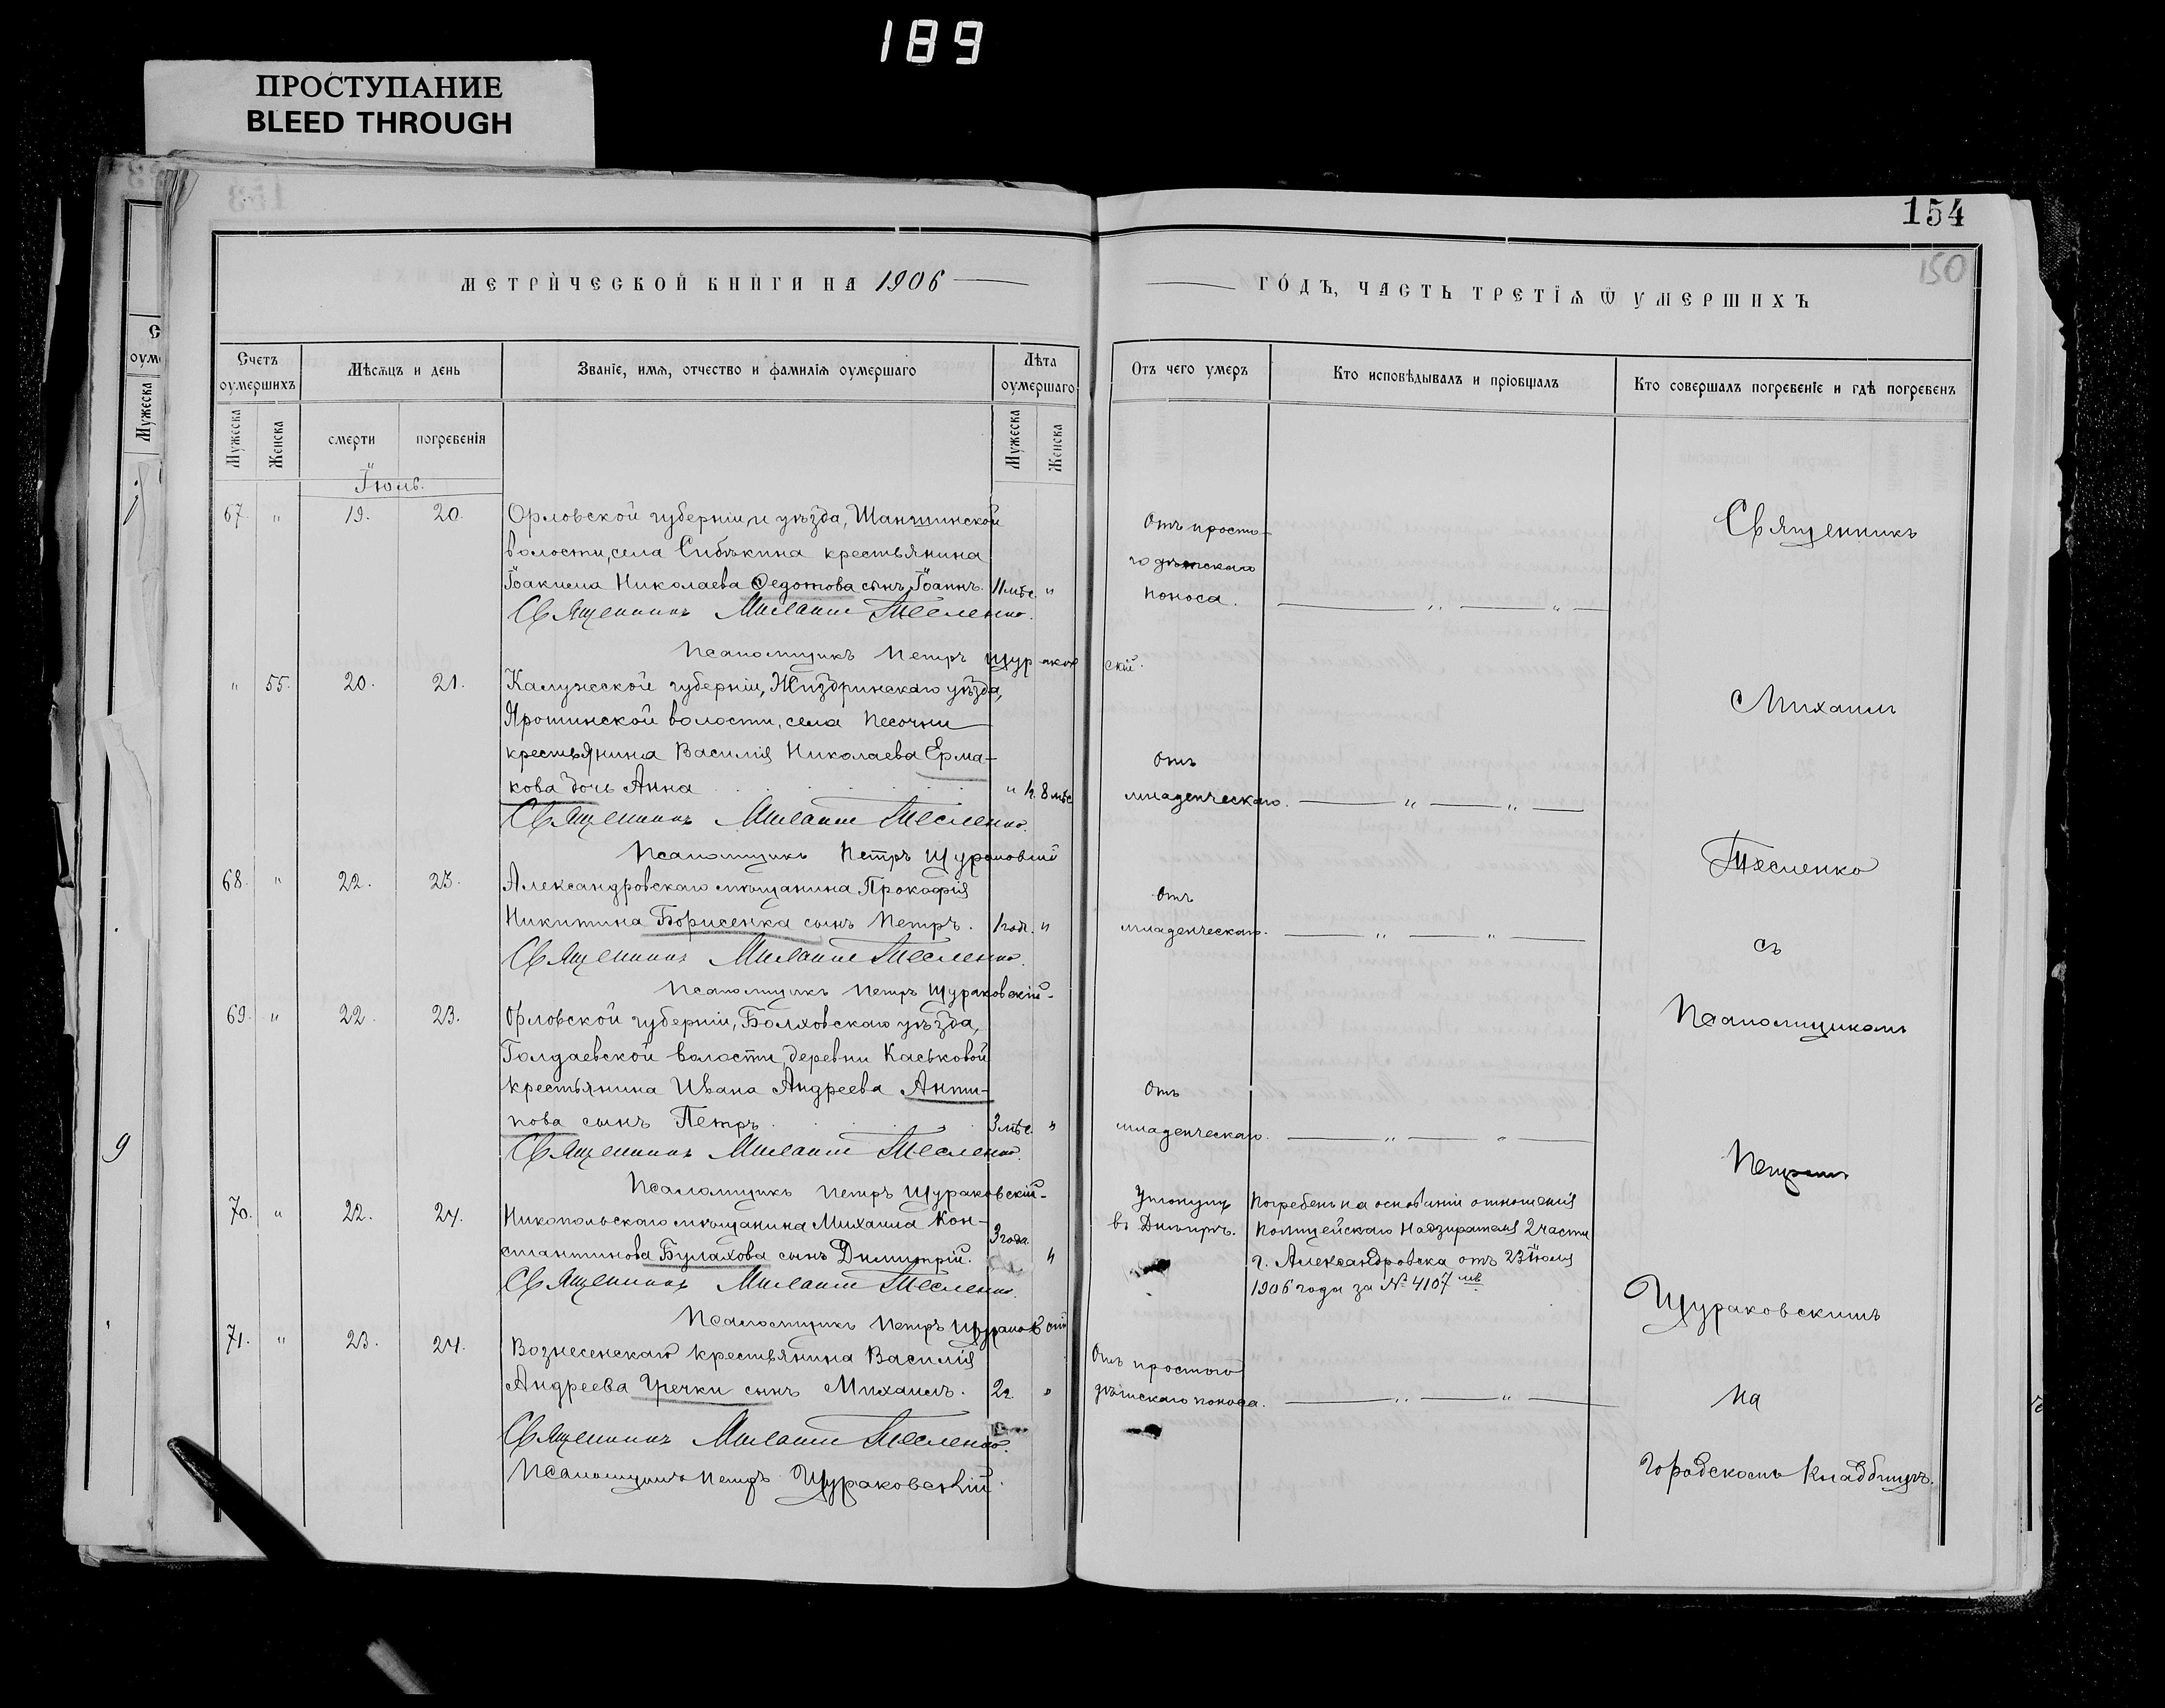 189
ПРОСТУПАНИЕ
BLEED THROUGH
154
150
МЕТРИ́ЧЕСКОЙ КНИ́ГИ НА 1906
ГО́ДЪ, ЧАСТЬ ТРЕТІѦ Ѿ УМЕРШИХЪ
Счетъ оумершихъ
Мѣсѧцъ и день
Званіе, имѧ, отчество и фамиліѧ оумершаго
Лѣта оумершаго
Отъ чего умеръ
Кто исповѣдывалъ и пріобщалъ
Кто совершалъ погребеніе и гдѣ погребенъ
Мужеска
Женска
смерти
погребенія
Мужеска
Женска
Іюль.
67. " 19. 20. Орловской губерніи и уѣзда,
волости, села крестьянина
Іоакима Николаева Ѳедотова сынъ Іоаннъ. 11 мѣс. "
Отъ просто-
го дѣтскаго
поноса.
Священникъ Михаилъ Тесленко.
Псаломщикъ Петръ Щураковскій.
" 55. 20. 21. Калужской губерніи, Жиздринскаго уѣзда,
волости, села Песочни
крестьянина Василія Николаева Ерма-
кова дочь Анна " 1г. 8 мѣс
Отъ
младенческаго.
Священникъ Михаилъ Тесленко.
Псаломщикъ Петръ Щураковскій
68. " 22. 23. Александровскаго мѣщанина Прокофія
Никитина Борисенка сынъ Петръ. 1 годъ. "
Отъ
младенческаго.
Священникъ Михаилъ Тесленко.
Псаломщикъ Петръ Щураковскій.
69. " 22. 23. Орловской губерніи, Болховскаго уѣзда,
Голдаевской волости, деревни Каськовой
крестьянина Ивана Андреева Анти-
пова сынъ Петръ. 3 мѣс. "
Отъ
младенческаго.
Священникъ Михаилъ Тесленко.
Псаломщикъ Петръ Щураковскій.
70. " 22. 24. Никопольскаго мѣщанина Михаила Кон-
стантинова Булахова сынъ Димитрій. 3 года. "
Утонулъ
въ Днѣпрѣ.
Погребенъ на основаніи отношенія
Полицейскаго Надзирателя 2 части
г. Александровска отъ 23 іюля
1906 года за № 4107 мъ
Священникъ Михаилъ Тесленко.
Псаломщикъ Петръ Щураковскій
71. " 23. 24. Вознесенскаго крестьянина Василія
Андреева Гречки сынъ Михаилъ. 2г. "
Отъ простого
дѣтскаго поноса.
Священникъ Михаилъ Тесленко.
Псаломщикъ Петръ Щураковскій.
Священникъ
Михаилъ
Тесленко
съ
Псаломщикомъ
Петромъ
Щураковскимъ
на
городскомъ кладбищѣ.